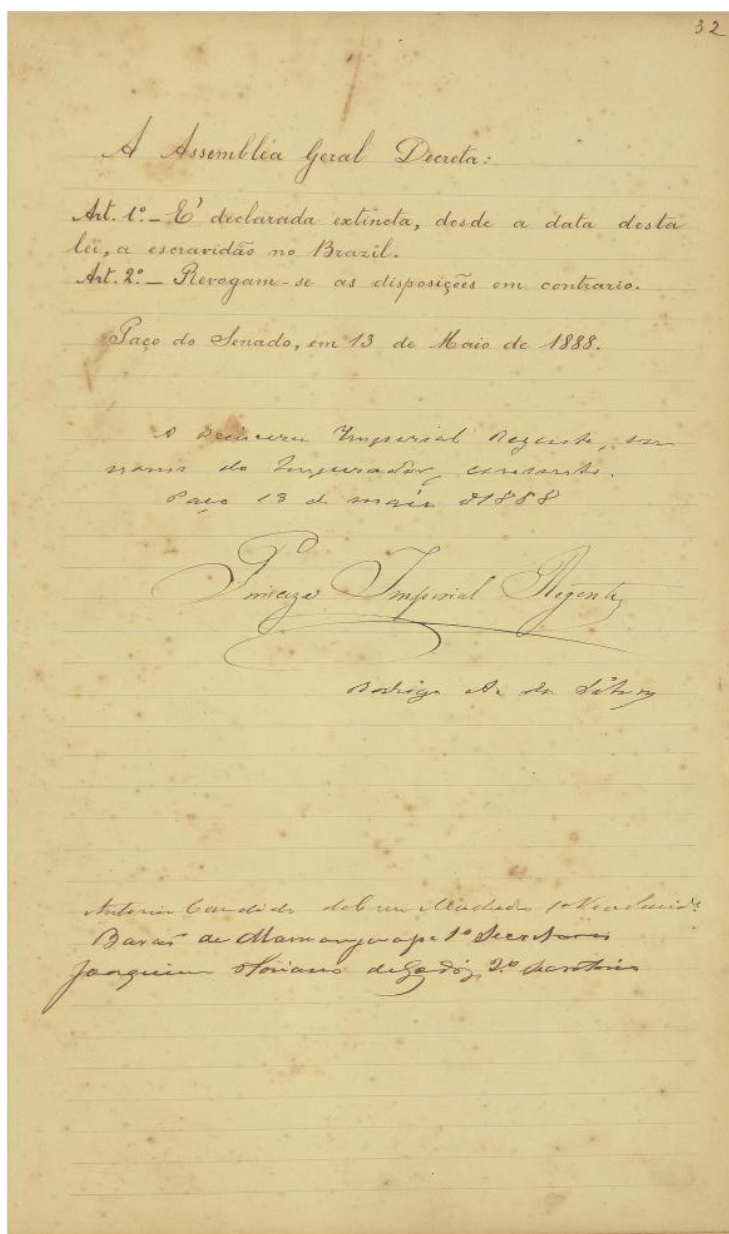 32
A Assembléa Geral Decreta:
Art. 1º_ E' declarada extincta, desde a data desta
lei, a escravidão no Brazil.
Art. 2º_ Revogam-se as disposições em contrario.
Paço do Senado, em 13 de Maio de 1888.
A Princeza Imperial Regente, em
nome do Imperador, consente.
Paço 13 de maio de 1888
Princeza Imperial Regente
Rodrigo A. da Silva
Antonio Candido da Cruz Machado 1º Vice
Barão de Mamanguape 1º Secretario
Joaquim Floriano de Godoy, 2º Secretario